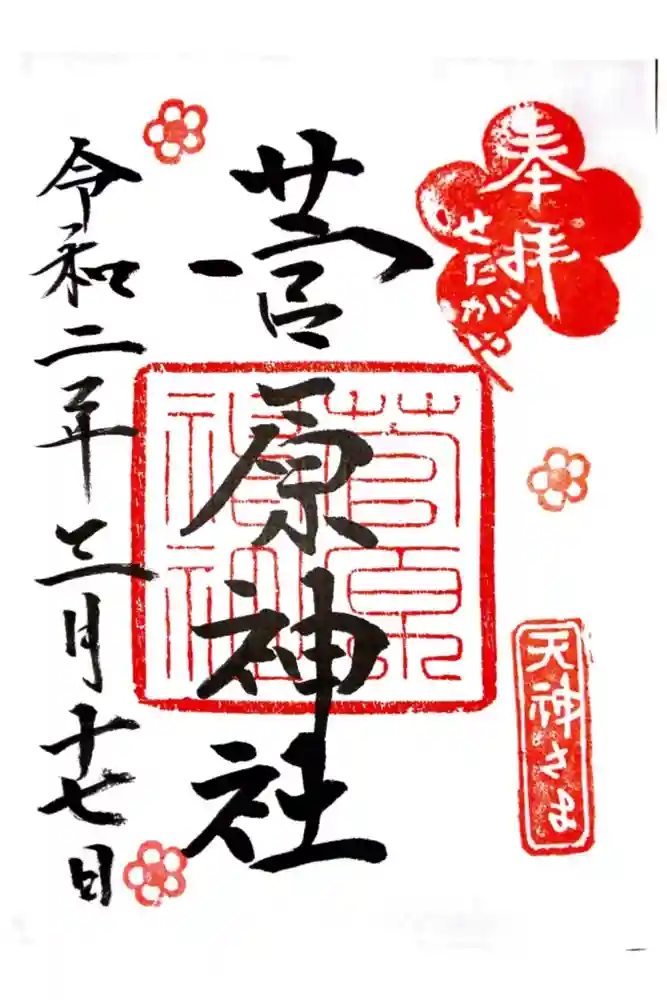 奉拝
せたがや
天神さま
菅原神社
菅原神社
令和二年三月十七日